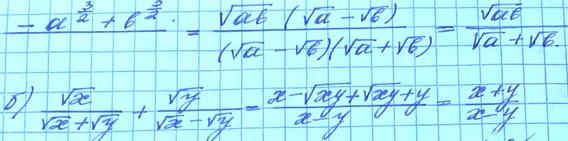 - a^{3/2} + b^{3/2} . = \frac{√ab (√a - √b)}{(√a - √b)(√a + √b)} = \frac{√ab}{√a + √b.}
б) \frac{√x}{√x + √y} + \frac{√y}{√x - √y} = \frac{x - √xy + √xy + y}{x - y} = \frac{x + y}{x - y}